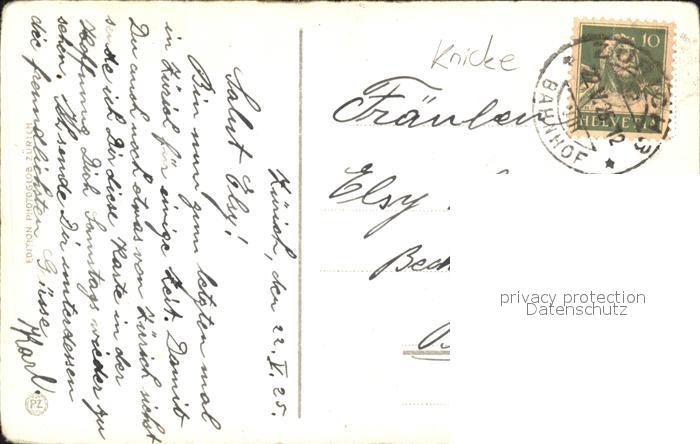 Zürich, den 22. V. 25.
Salut Elsy!
Bin nun zum letzten mal
in Zürich für einige Zeit. Damit
Du auch noch etwas von Zürich siehst
sende ich Dir diese Karte in der
Hoffnung Dich Samstags wieder zu
sehen. Übersende Dir unterdessen
die freundlichsten Grüsse
Karl.
EDITION PHOTOGLOB ZÜRICH
PZ
Knicke
10
HELVETIA
BAHNHOF
Fräulein
Elsy
privacy protection
Datenschutz